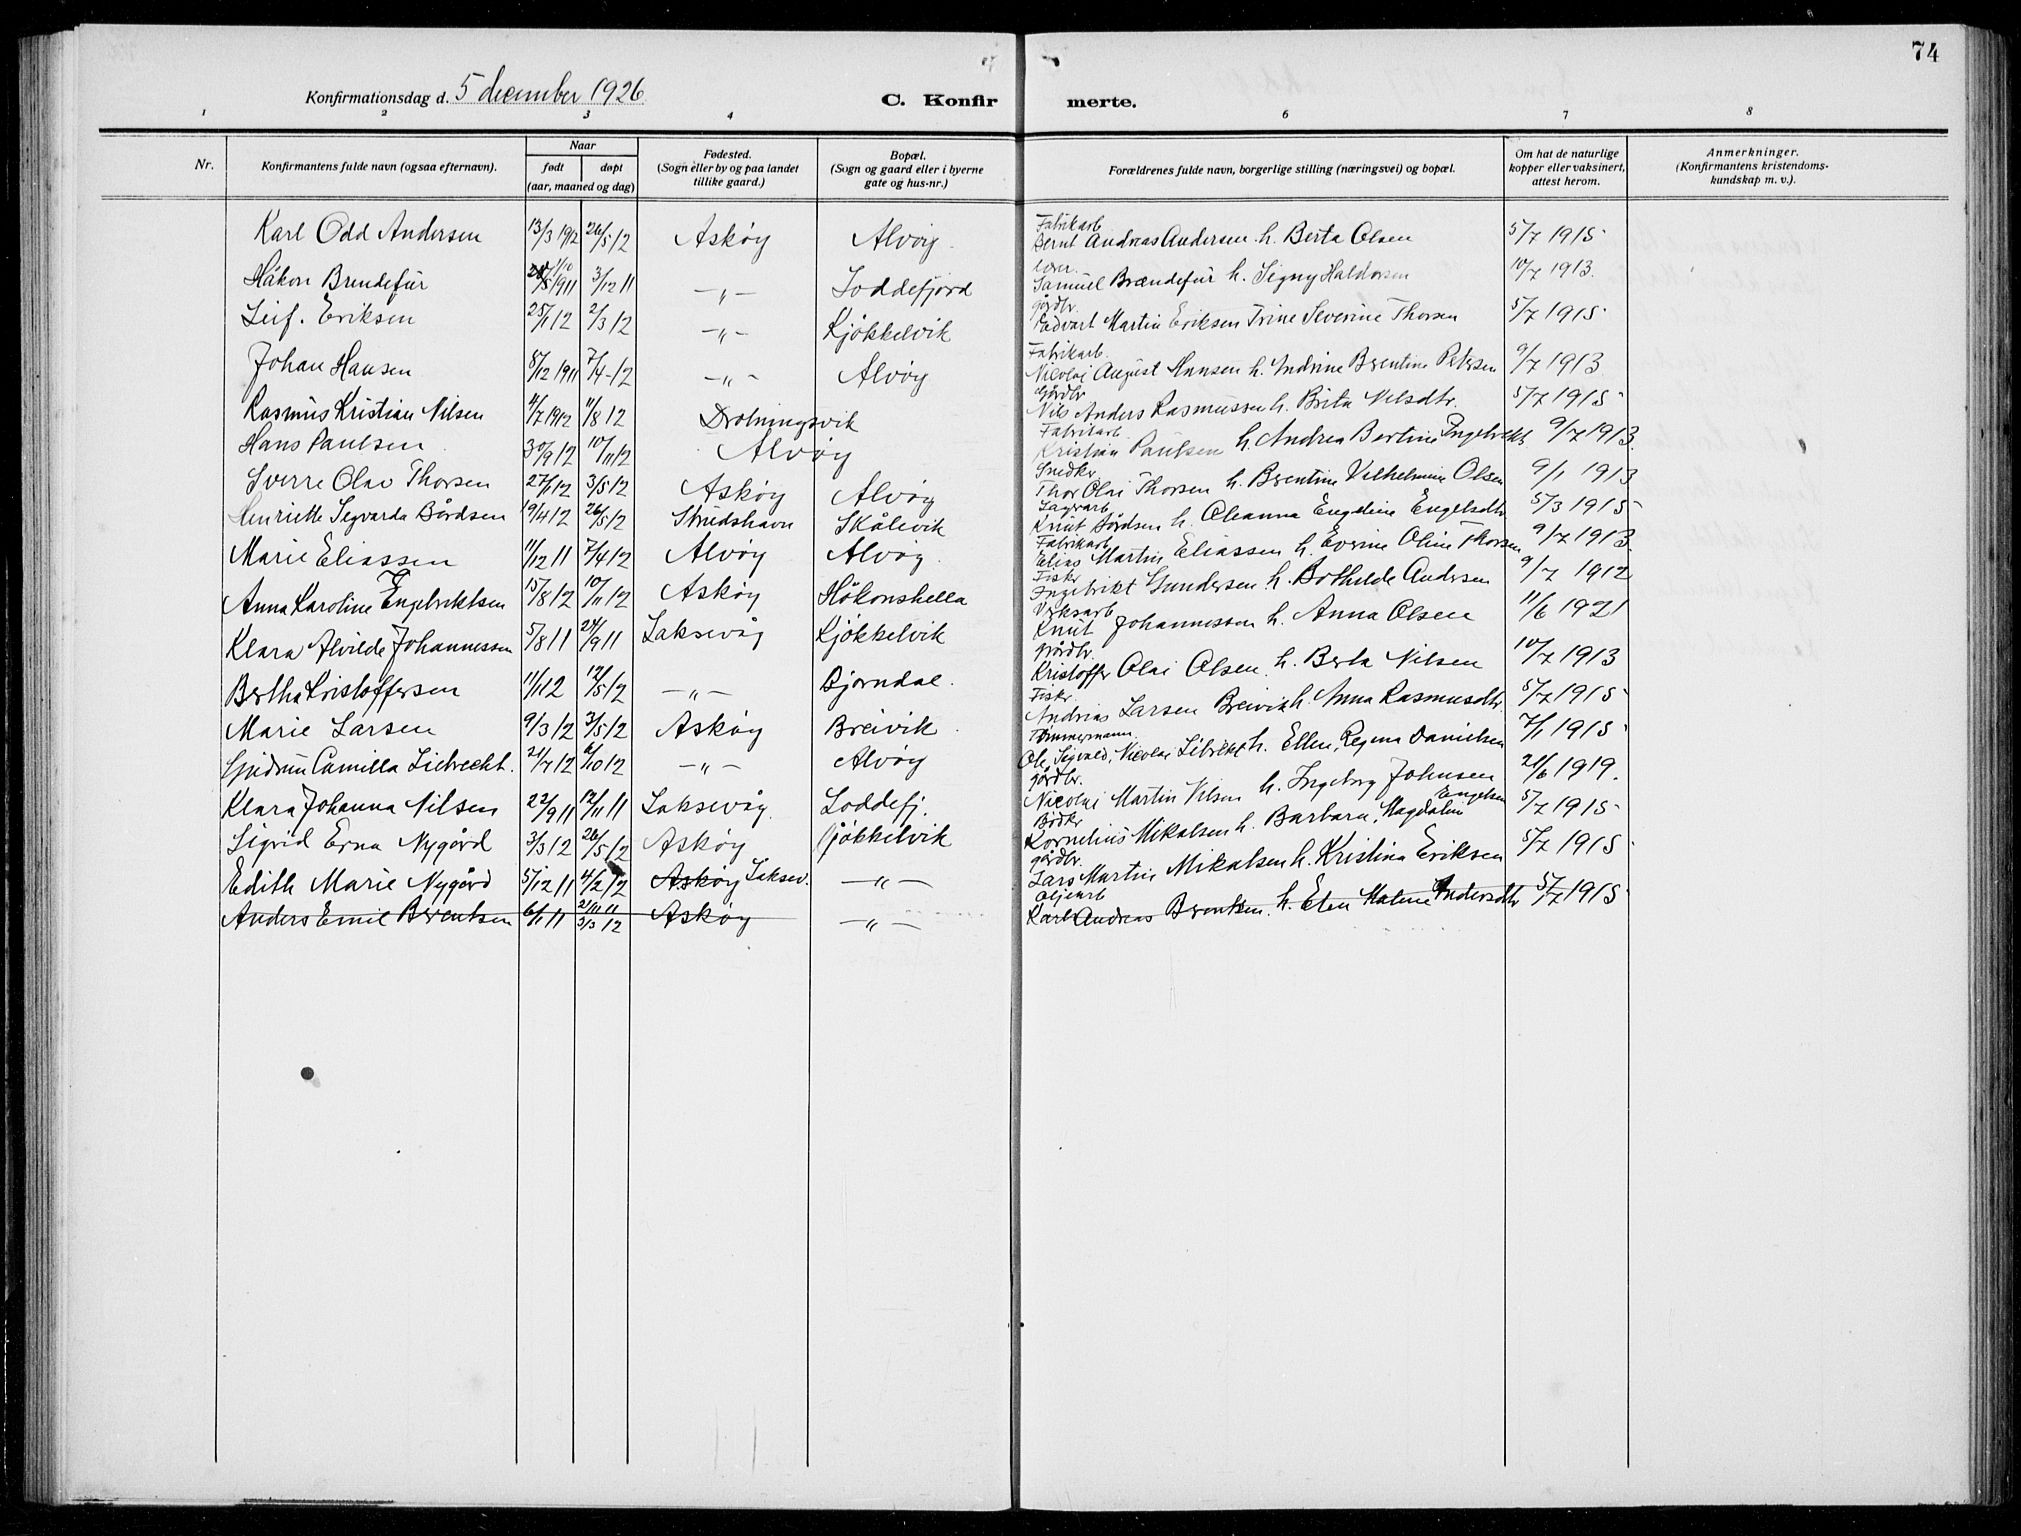 74
Konfirmationsdag d. 5 december 1926 C. Konfir merte.
1 2 3 4 6 7 8
Nr. Konfirmantens fulde navn (ogsaa efternavn). Naar født døpt (aar, maaned og dag) Fødested. (Sogn eller by og paa landet tillike gaard.) Bopæl. (Sogn og gaard eller i byerne gate og hus-nr.) Forældrenes fulde navn, borgerlige stilling (næringsvei) og bopæl. Om hat de naturlige kopper eller vaksinert, attest herom. Anmerkninger. (Konfirmantens kristendomskundskap m. v.).
Karl Odd Andersen 13/3 1912 26/5 12 Asköy Alvöy Fabrikarb Bernt Andreas Andersen h. Berta Olsen 5/7 1915
Håkon Brendefur 3/12 11 -"- Loddefjord Samuel Brændefur h. Signy Haldorsen 10/7 1913.
Leif. Eriksen 25/1 12 2/3 12 -"- Kjökkelvik gårdbr. Edvart Martin Eriksen Trine Severine Thorsen 5/7 1915
Johan Hansen 8/12 1911 7/4-12 -"- Alvöy Fabrikarb. Nicolai August Hansen h. Andrine Brentine Petersen 9/7 1913
Rasmus Kristian Nilsen 4/7 1912 11/8 12 Drotningsvik Gårdbr Nils Anders Rasmussen h. Brita Nilsdtr. 5/7 1915
Hans Paulsen 30/9 12 10/11 12 Alvöy Fabrikarb Kristian Paulsen h. Andrea Bertine Ingebrekts 9/7 1913.
Sverre Olav Thorsen 27/1 12 3/5 12 Asköy Alvöy Snedkr Thor Olai Thorsen h. Brentine Vilhelmine Olsen 9/1 1913
Henriette Segvarda Bårdsen 19/4 12 26/5 12 Strudshavn Skålevik Knut Bårdsen h. Oleanna Engeline Engelsdtr 5/3 1915
Marie Eliassen 11/12 11 7/4 12 Alvöy Alvöy. Fabrikarb Elias Martin Eliassen h. Everine Oline Thorsen 9/7 1913.
Anna Karoline Engebriktsen 15/8 12 10/11 12 Asköy Håkonshella Fiskr Ingebrikt Gundersen h. Bothilde Andersen 9/7 1912
Klara Alvilde Johannessen 5/8 11 24/9 11 Laksevåg Kjökkelvik Verksarb Knut Johannessen h. Anna Olsen 11/6 1921
Bertha Kristoffersen 11/1 12 12/5 12 -"- Bjorndal. gårdbr. Kristoffer Olai Olsen h. Berta Nilsen 10/7 1913
Marie Larsen 9/3 12 3/5 12 Asköy Breivik Fiskr. Andrias Larsen Breivik h. Anna Rasmusdtr. 5/7 1915
Gudrun Camilla Liebrecht. 21/7 12 6/10 12 -"- Alvöy Timmermann. Ole, Segvald, Nicolai Librekt h. Ellen, Regina Danielsen 7/1 1915
Klara Johanna Nilsen 22/9 11 12/11 11 Laksevåg. Loddefj. gårdbr. Nicolai Martin Nilsen h. Ingeborg Johnsen 21/6 1919.
Sigrid Erna Nygård 3/3 12 26/5 12 Asköy Kjökkelvik Bödkr Kornelius Mikalsen h. Barbara, Magdalini Engelsen 5/7 1915
Edith Marie Nygård 5/12 11 4/2 12 Asköy Laksev. -"- gårdbr. Lars Martin Mikalsen h. Kristina Eriksen 5/7 1915
Anders Emil Berentsen 6/1 11 21/11 11 3/3 12 Asköy -"- Oljearb Karl Andreas Berentsen. h. Elen Malene Andersdtr 5/7 1915